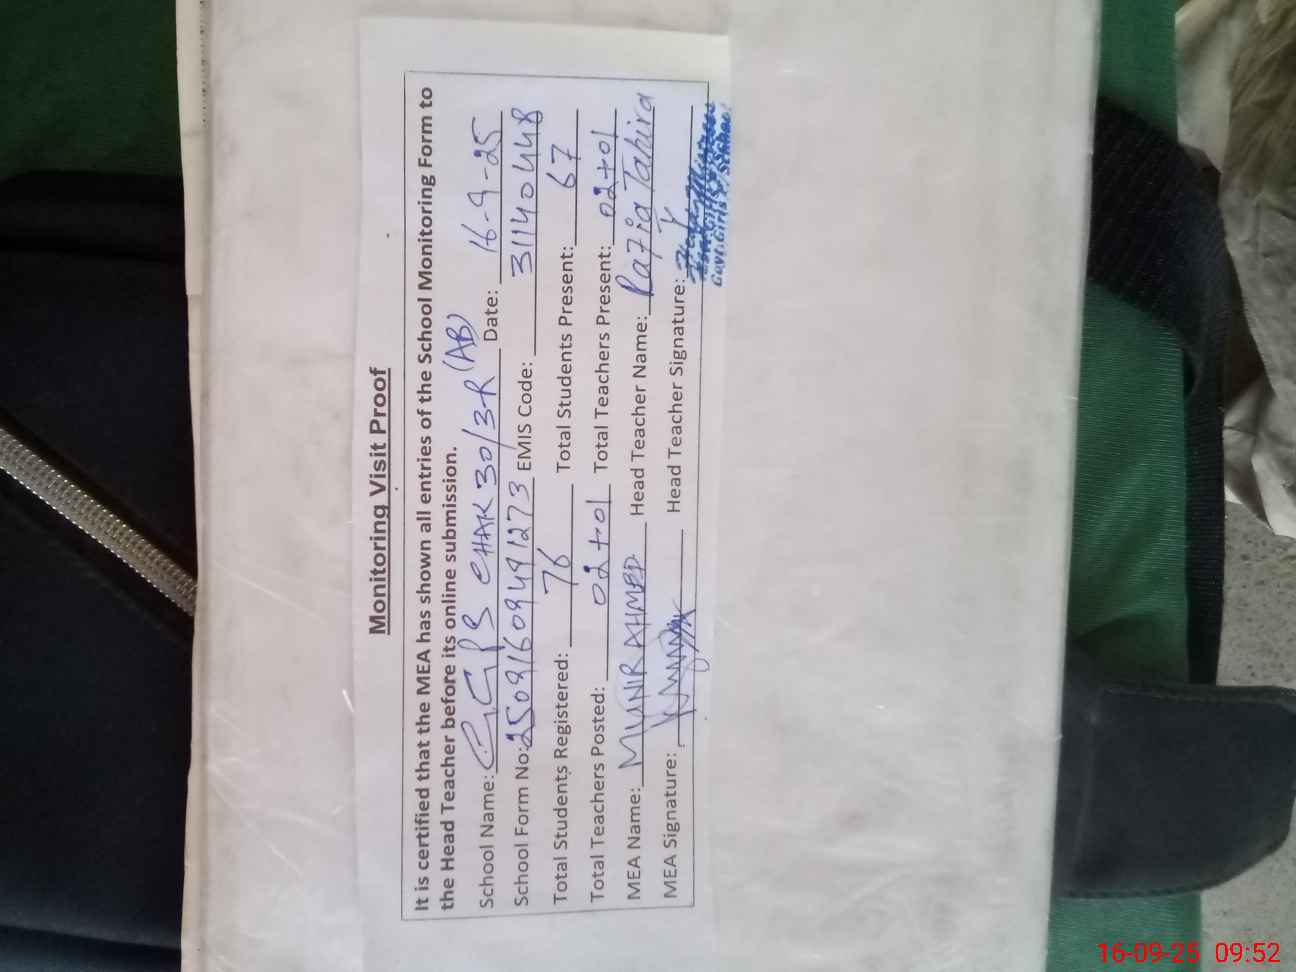 Monitoring Visit Proof
It is certified that the MEA has shown all entries of the School Monitoring Form to
the Head Teacher before its online submission.
School Name: GGPS CHAK 30/3-R (AB) Date: 16-9-25
School Form No: 25091609491273 EMIS Code: 31140448
Total Students Registered: 76 Total Students Present: 67
Total Teachers Posted: 02+01 Total Teachers Present: 02+01
MEA Name: MUNIR AHMED Head Teacher Name: Razia Tahira
MEA Signature: Head Teacher Signature:
Govt. Girls
16-09-25 09:52